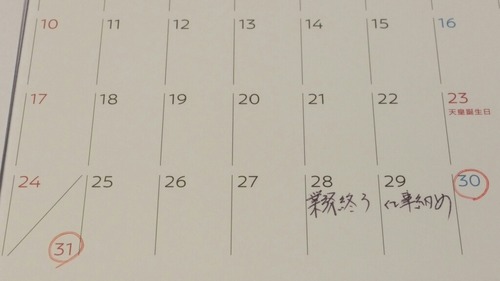 10 11 12 13 14 15 16
17 18 19 20 21 22 23
天皇誕生日
24 25 26 27 28 29 30
業務終り 仕事納め
31